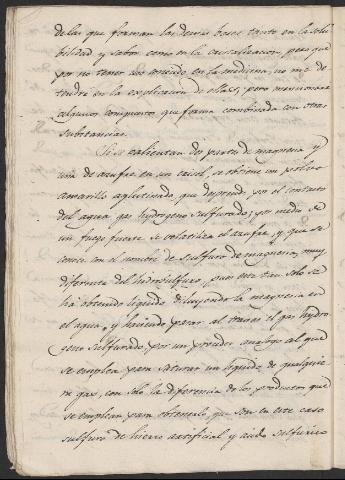 de las que forman las demas bases tanto en la solu
bilidad y sabor como en la cristalizacion, pero que
por no tener uso conocido en la medicina, no me de
tendré en la esplicacion de ellas; pero mencionaré
algunos compuestos que forma combinada con otras
substancias.
Si se calientan dos partes de magnesia y
una de azufre en un crisol, se obtiene un polvo
amarillo aglutinado que desprende por el contacto
del agua gas hydrogeno sulfurado; por medio de
un fuego fuerte se volatiliza el azufre, y que se
conoce con el nombre de sulfuro de magnesia, muy
diferente del hidrosulfuro, pues este tan solo se
há obtenido liquido diluyendo la magnesia en
el agua, y haciendo pasar al traves el gas hydro
geno sulfurado por un proceder analogo al que
se emplea para saturar un liquido de cualquie
ra gas, con solo la diferencia de los productos que
se emplean para obtenerlo que son en este caso
sulfuro de hierro artificial y acido sulfurico